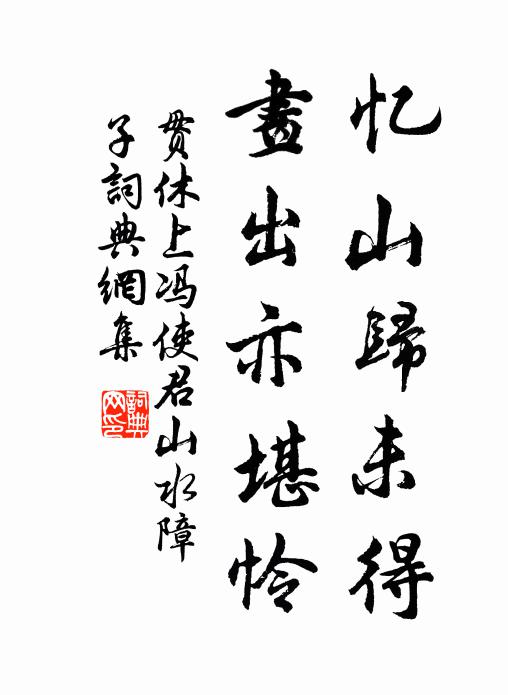 忆山歸未得
畫出亦堪怜
贯休上冯使君山水障
子詞典網集
詞典网印